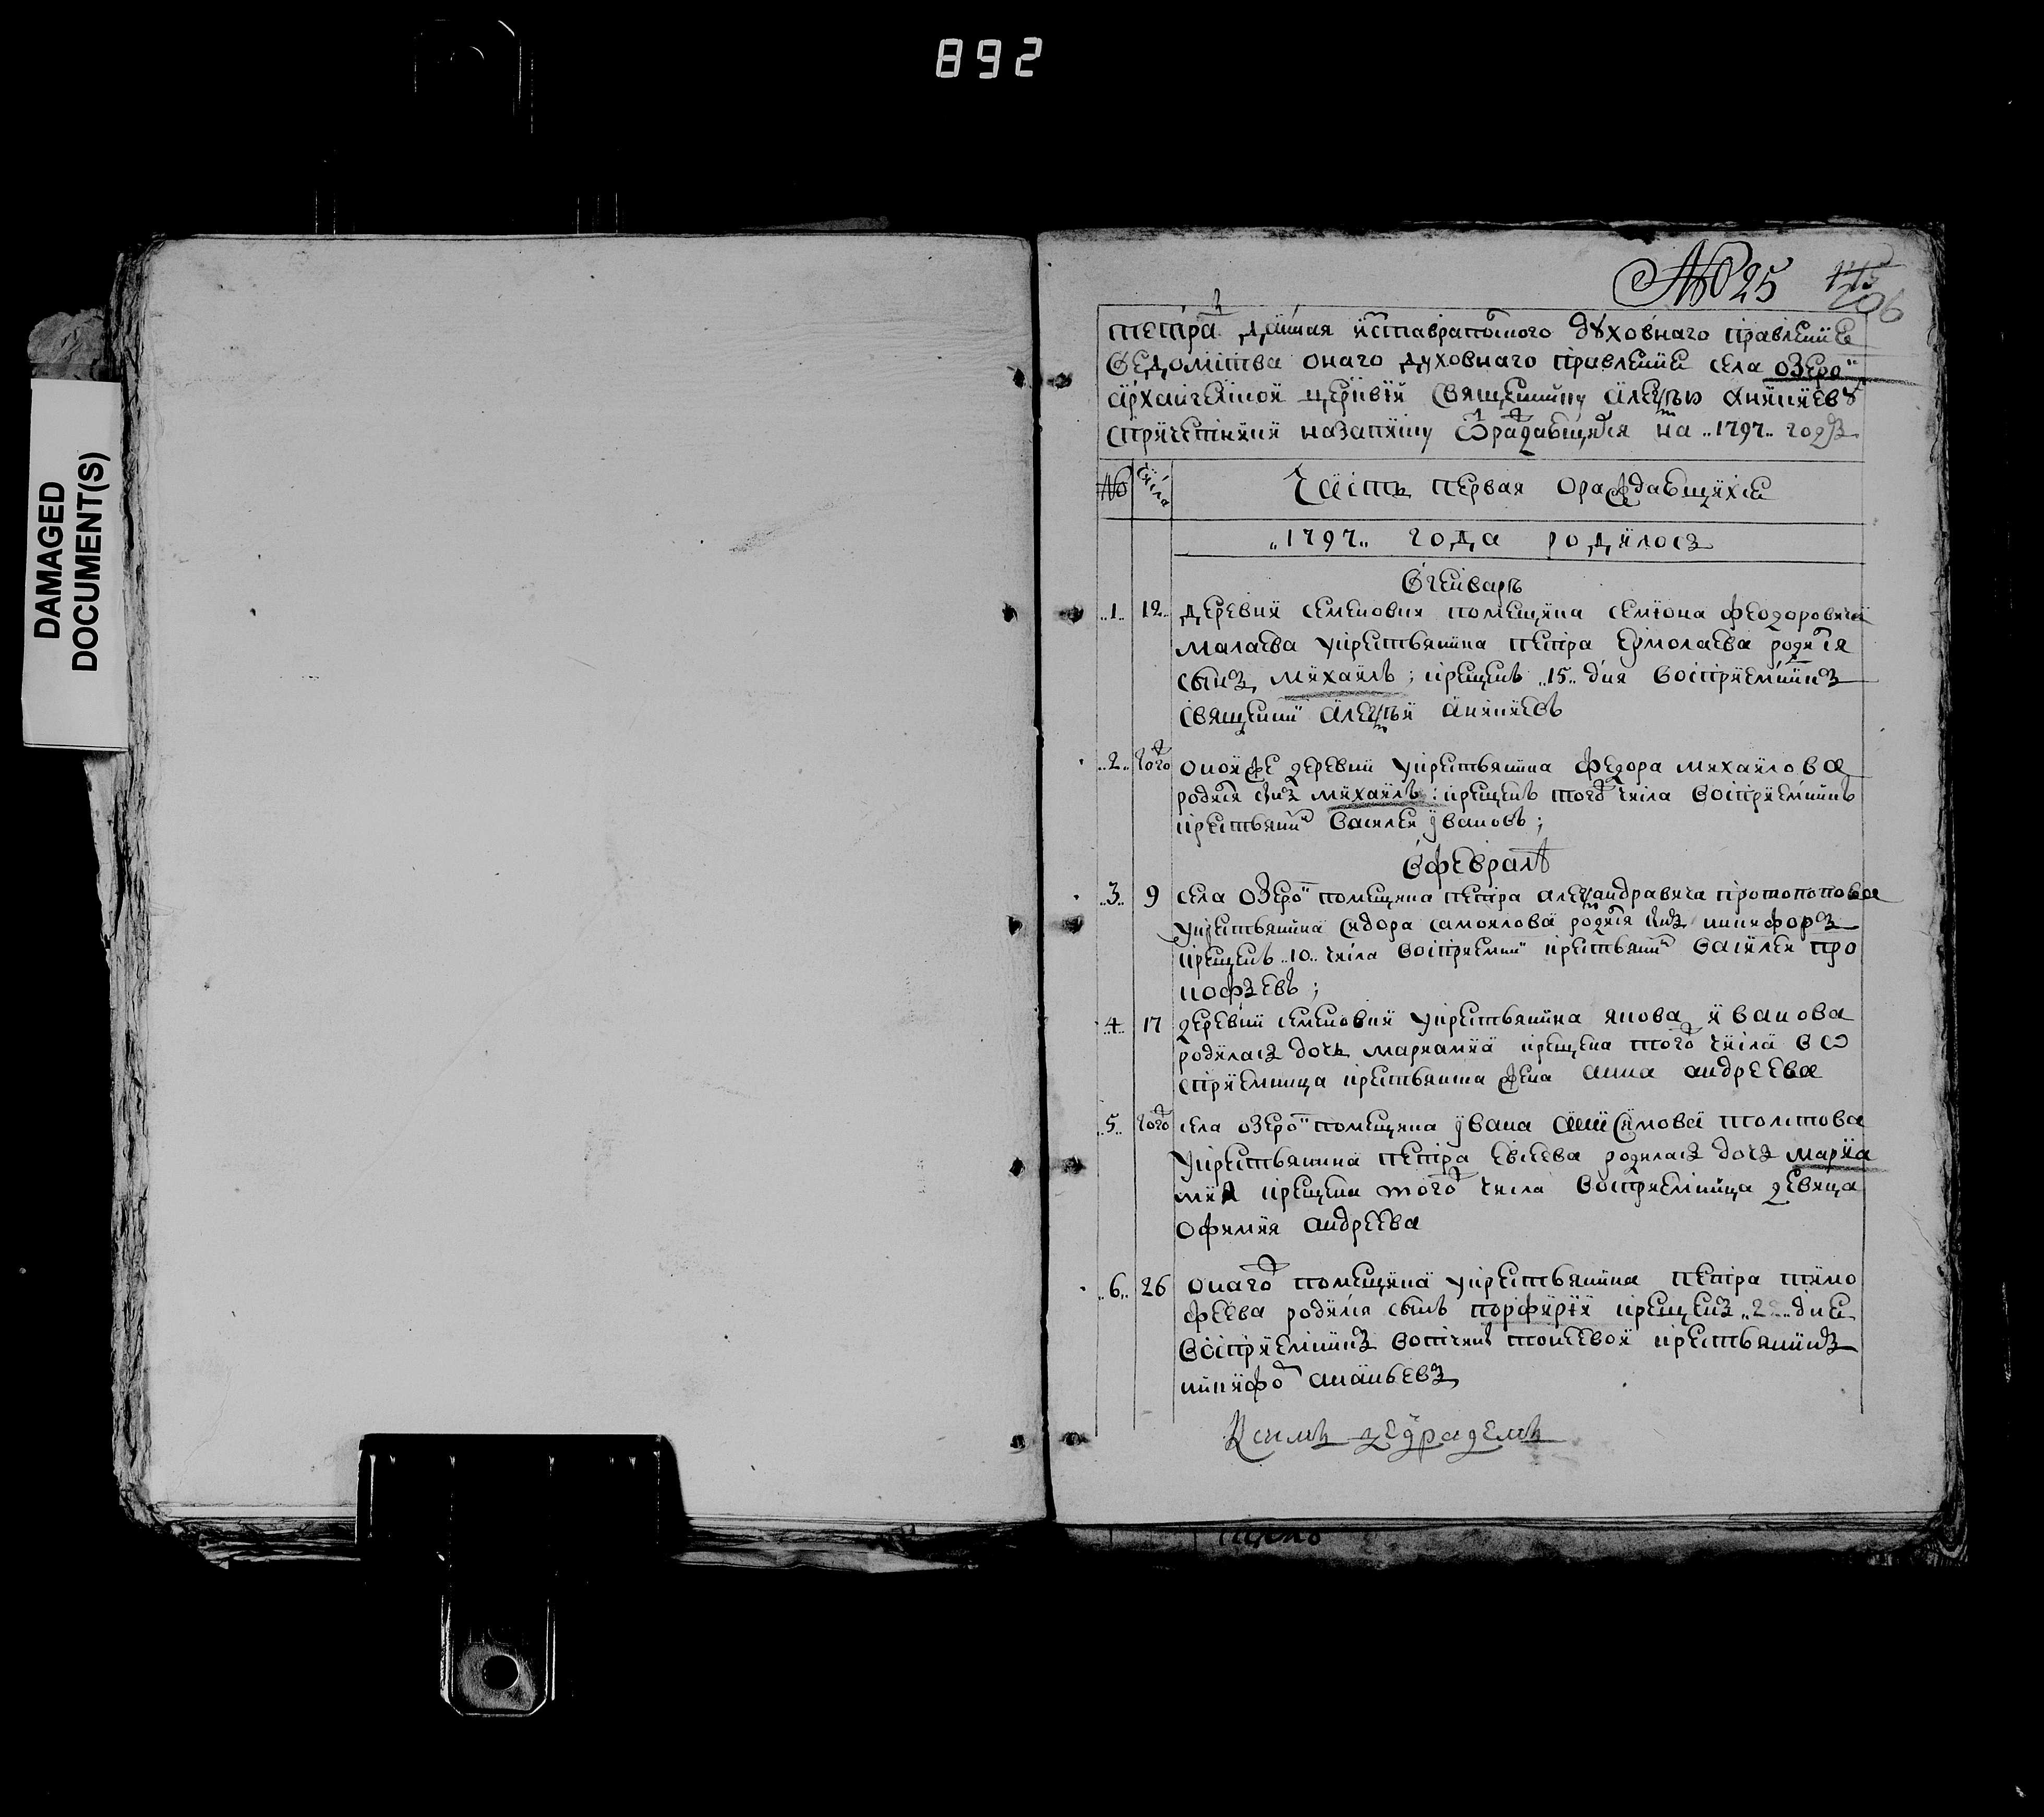 892
DAMAGED
DOCUMENT(S)
№ 25
206
тетрад данная ставрапол҄ского дꙋховнаго правление
ведомства онаго духовнаго правление села озеро
архангелской церквѣй священнику алеѯѣю ананиевꙋ
спричетникиназапизку ораждающихся на 1797 годъ
№ числа Часть первая ораждающихся
1797 года родилось
Вгенваръ
1 12 деревни семеновки помещика семиона феодоровича
малаева укрестьянина петра ермолаева родился
сынъ михаилъ; крещенъ 15 дня восприемникъ
священник алеѯѣй ананиевъ
2 того онойже деревни укрестьянина федора михаилова
родился сынъ михаилъ; крещенъ того числа восприемникъ
крестьянин василей ивановъ;
Вфевралѣ
3 9 села озеро помещика петра алеѯандравича протопопова
укрестьянина сидора самоилова родился сынъ никифоръ
крещенъ 10 числа восприемник крестьянин василей про
кофьевъ;
4 17 деревни семеновки укрестьянина якова иванова
родилась дочь мариамия крещена того числа во
сприемница крестьянина жена анна андреева
5 того села озеро помещика ивана толстова
укрестьянина петра евсеева родилась дочь мариа
мия крещена того числа восприемница девица
офимия андреева
6 26 онаго помещика укрестьянина петра тимо
феева родился сынъ порфирий крещенъ дне
восприемникъ вотчины крестьянинъ
никифор ананьевъ